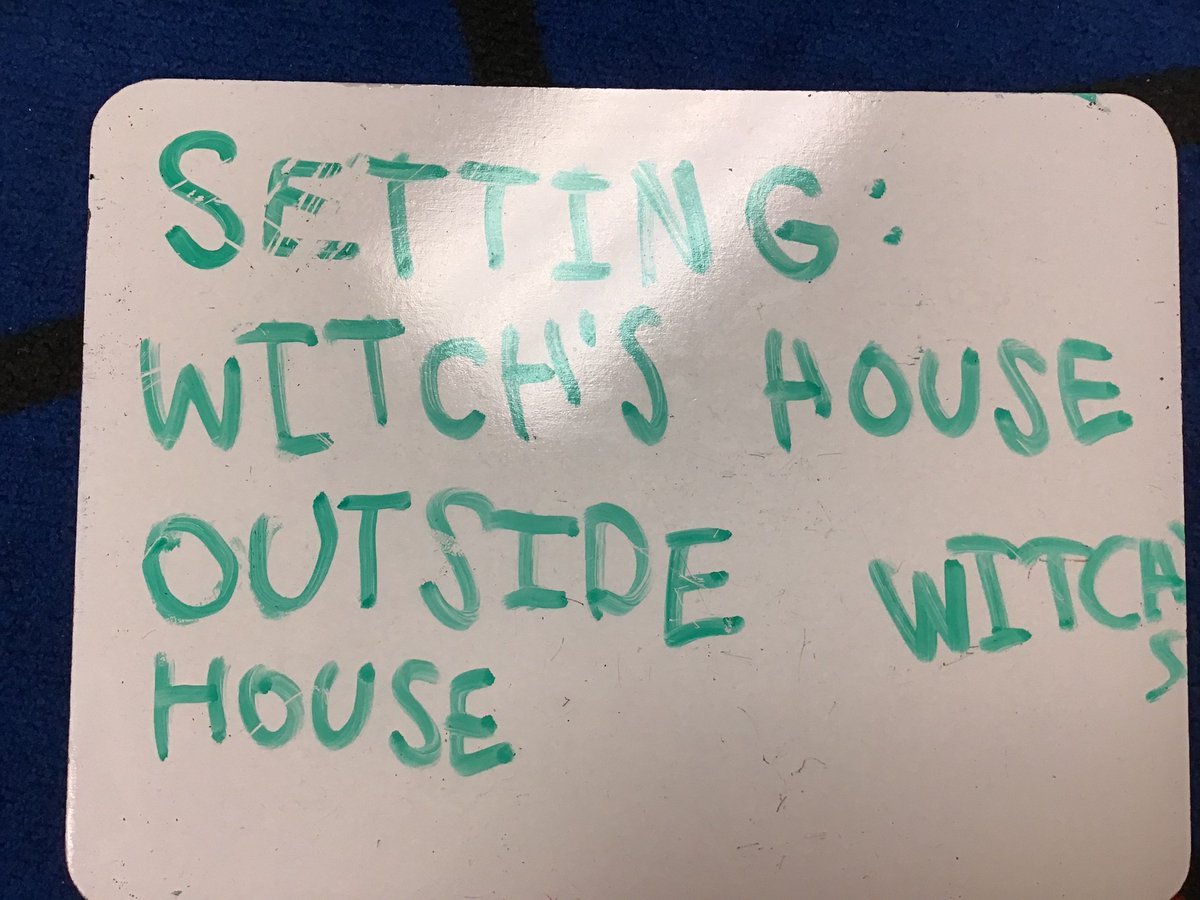 SETTING:
WITCH'S HOUSE
OUTSIDE WITCH'S
HOUSE